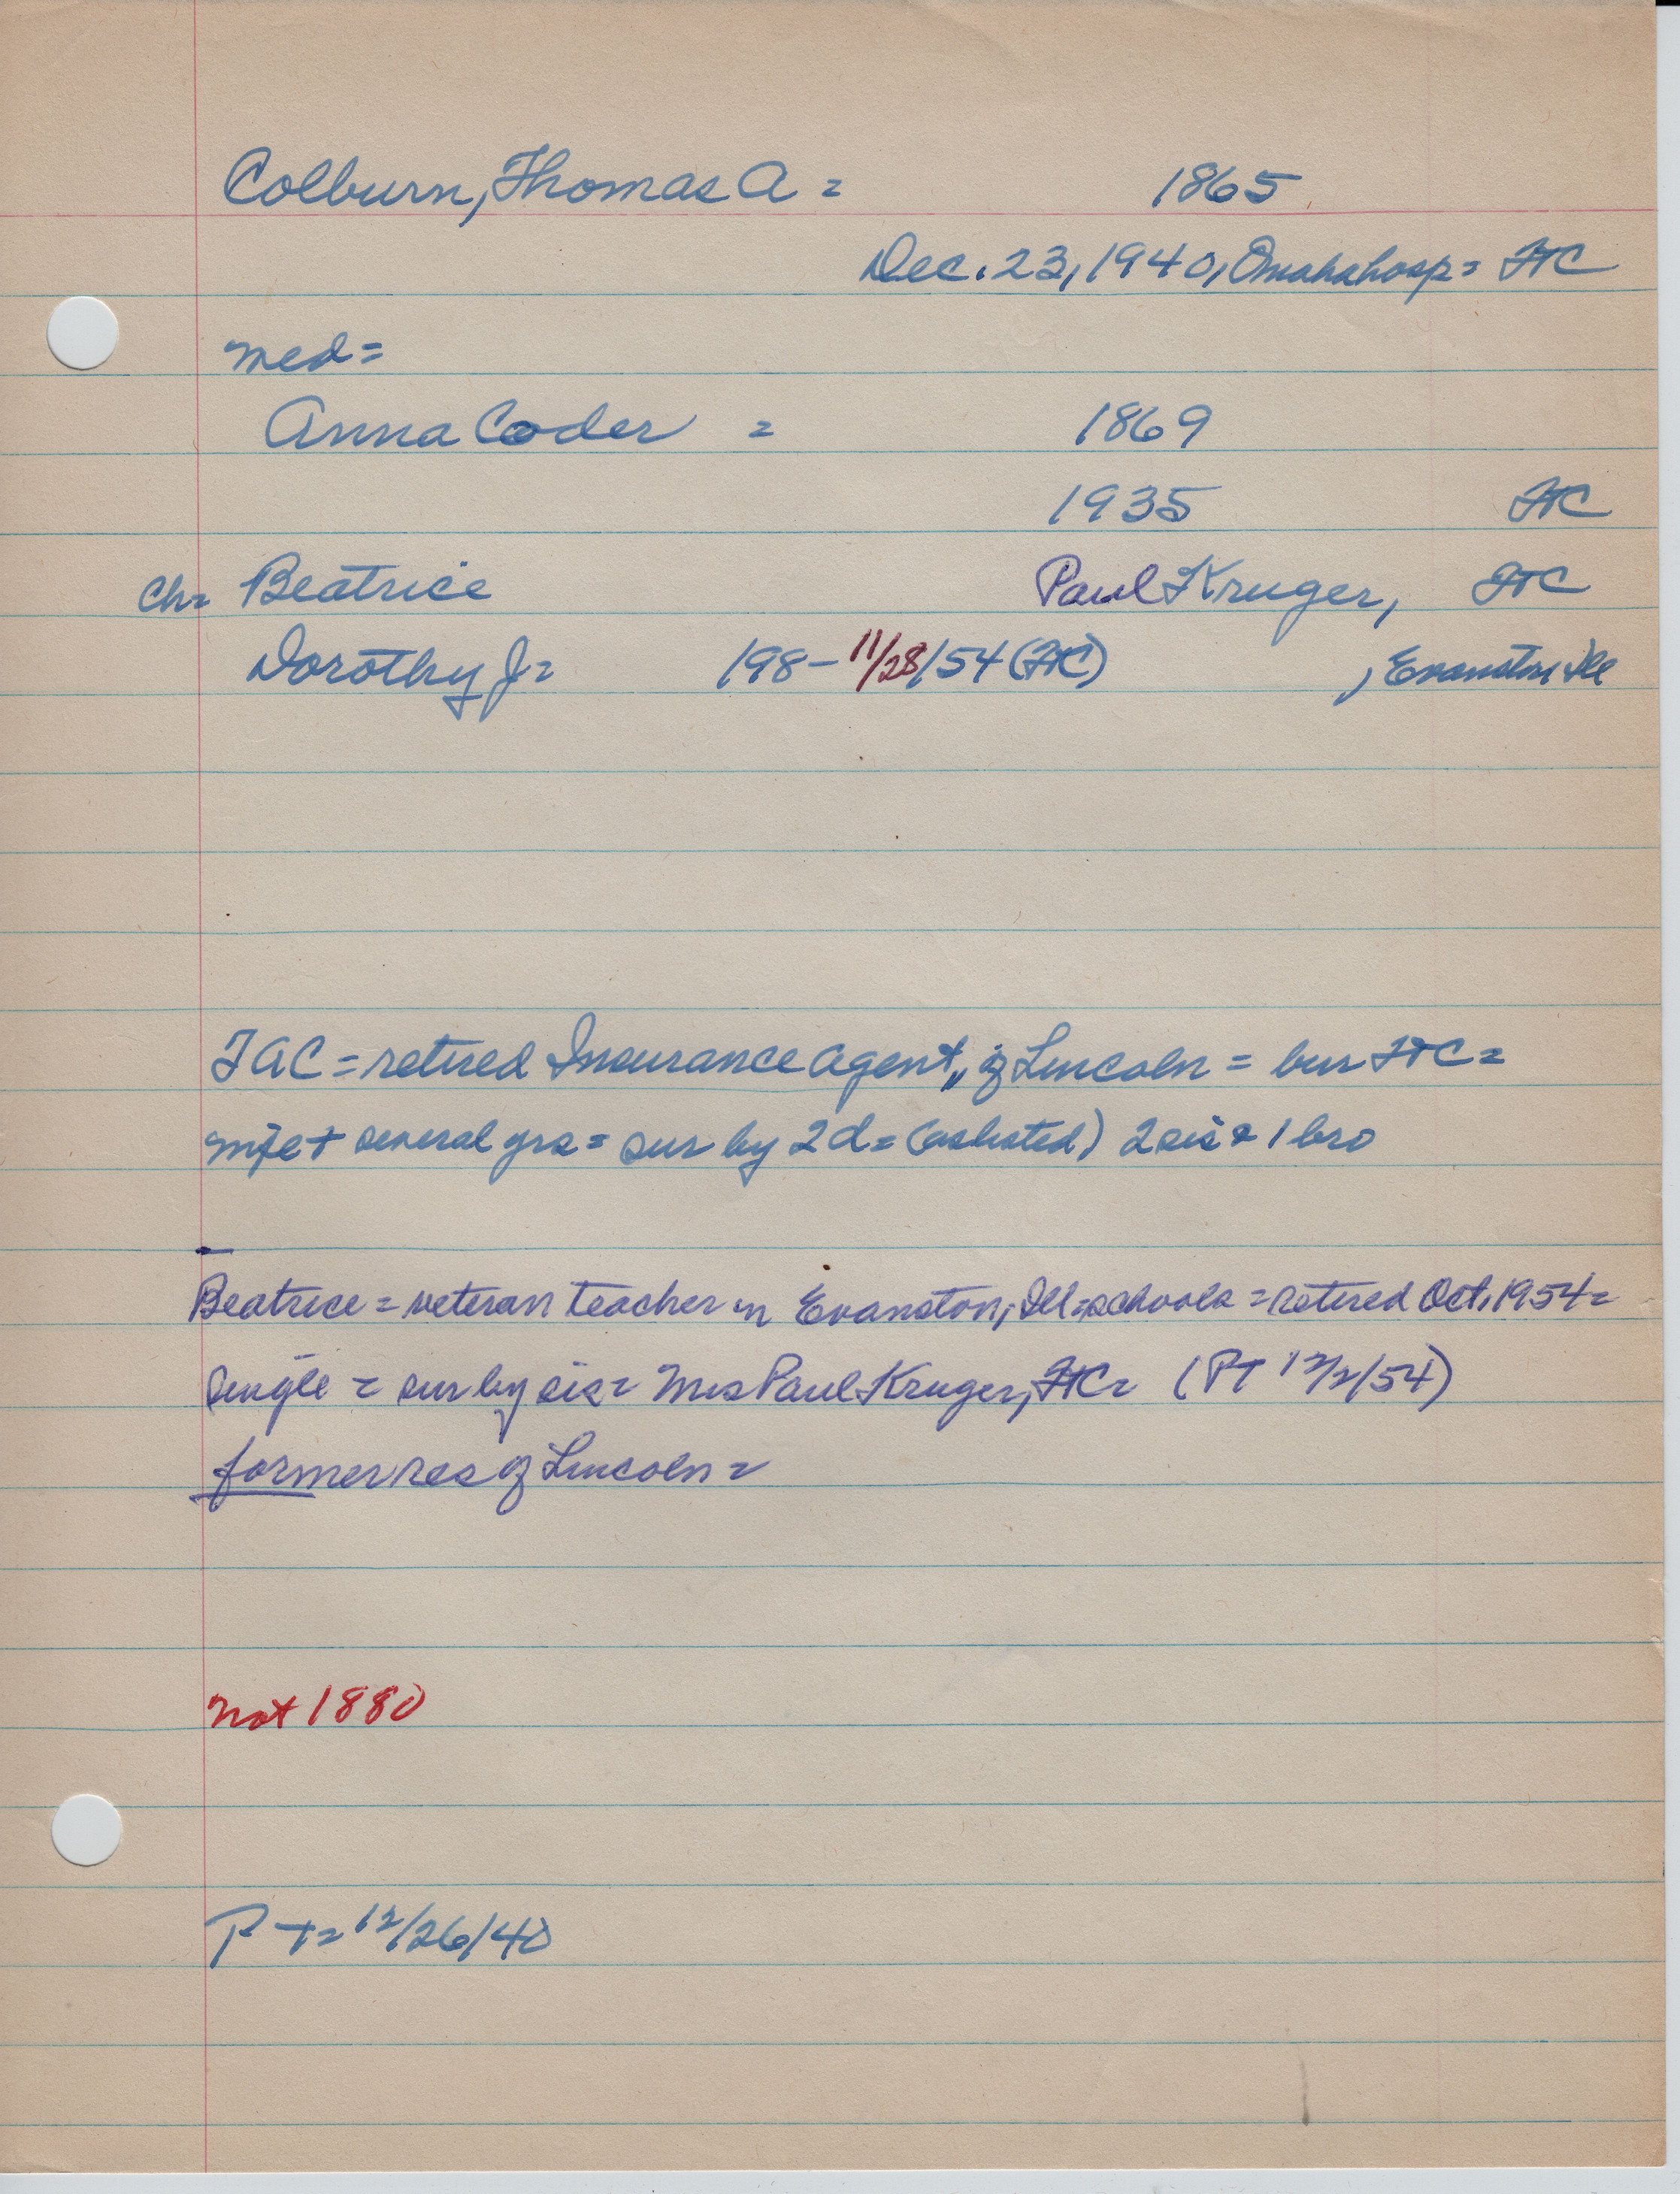 Colburn, Thomas A = 1865
Dec. 23, 1940, Omaha hosp = FTC
med =
Anna Coder = 1869
1935 FTC
ch = Beatrice Paul Kruger, FTC
Dorothy J = 198- 11/28/54 (FTC) , Evanston Ill
TAC = retired Insurance agent, of Lincoln = bur FTC =
mfe + several yrs = sur by 2 d = (as listed) 2 sis & 1 bro
Beatrice = veteran teacher in Evanston, Ill = schools = retired Oct, 1954 =
single = sur by sis = Mrs Paul Kruger, FTC = (PT 12/2/54)
former res of Lincoln =
not 1880
PT = 12/26/40